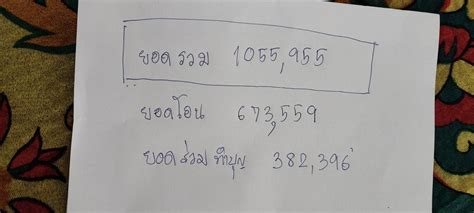 ยอดรวม 1055,955
ยอดโอน 673,559
ยอดร่วมทำบุญ 382,396